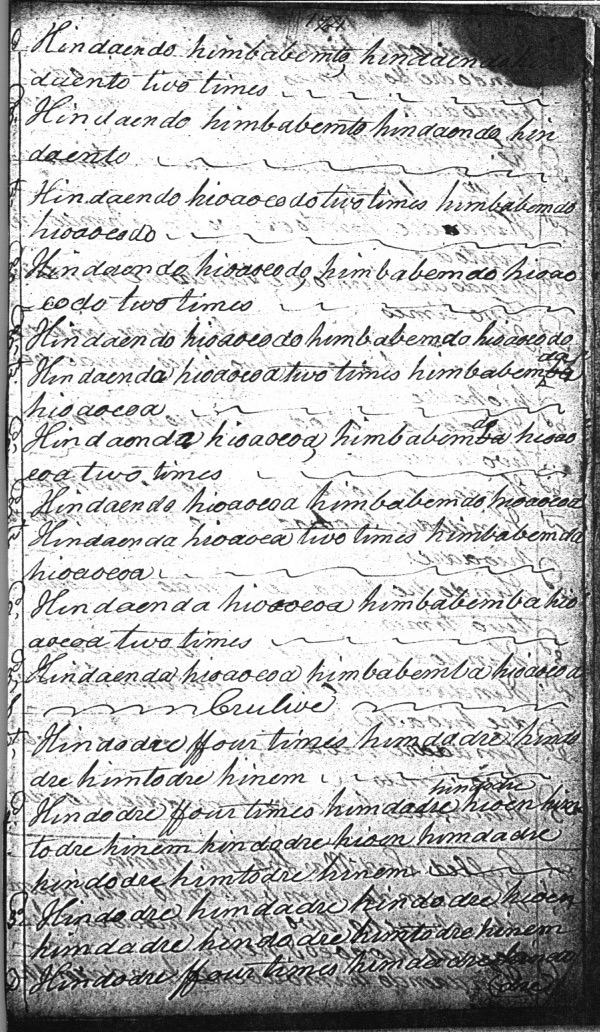 Hindaendo himbabemto, hindaendo hin
daento two times
Hindaendo himbabemto hindaendo, hin
daento
Hindaendo hioaoeodo two times himbabemdo
hioaoeodo
Hindaendo hioaoeodo, himbabemdo hioao
eodo two times
Hindaendo hioaoeodo himbabemdo hioaoeodo
Hindaenda hioaoeoa two times himbabemda
hioaoeoa
Hindaenda hioaoeoa, himbabemda hioao
eoa two times
Hindaendo hioaoeoa himbabemdo hioaoeoa
Hindaenda hioaoea two times himbabemda
hioaoeoa
Hindaenda hioaoeoa himbabemba hio
aoeoa two times
Hindaenda hioaoeoa himbabemba hioaoeoa
Crulive
Hindodre ffour times himdadre hindo
dre himtodre hinem
hindodre
Hindodre ffour times himdadre hioen him
todre hinem hindodre hioen himdadre
hindodre himtodre hinem
Hindodre himdadre hindodre hioen
himdadre hindodre himtodre hinem
Hindodre ffour times himdadre hindo
dre